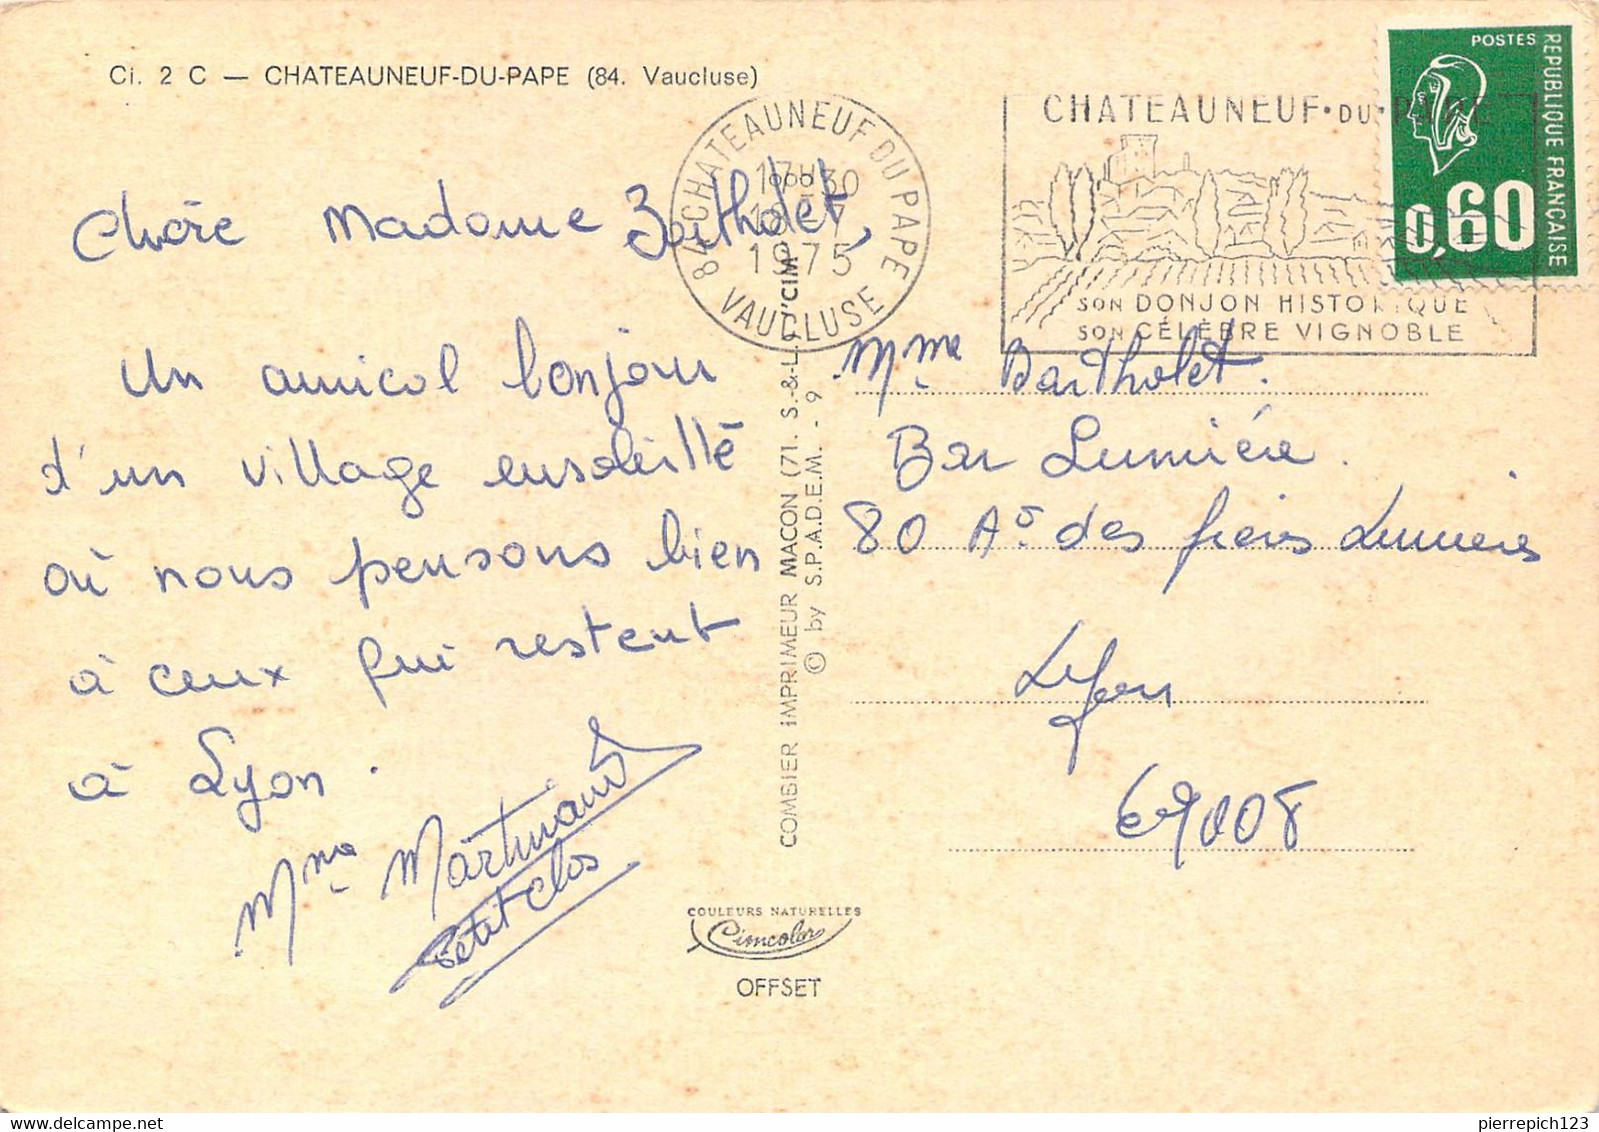 Ci. 2 C — CHATEAUNEUF-DU-PAPE (84. Vaucluse)
84 CHATEAUNEUF DU PAPE
17H30
1975
VAUCLUSE
CHATEAUNEUF·DU·PAPE
SON DONJON HISTORIQUE
SON CÉLÈBRE VIGNOBLE
POSTES
REPUBLIQUE FRANÇAISE
0,60
Chère Madame Bartholet,
Un amical bonjour
d'un village ensoleillé
où nous pensons bien
à ceux qui restent
à Lyon.
Mme Martinand
Petit clos
COMBIER IMPRIMEUR MACON (71. S.-&-L.) "CIM"
© by S.P.A.D.E.M. - 9
Mme Bartholet.
Bar Lumière.
80 Av. des frères Lumière
Lyon
69008
COULEURS NATURELLES
Cimcolor
OFFSET
delcampe.net
pierrepich123